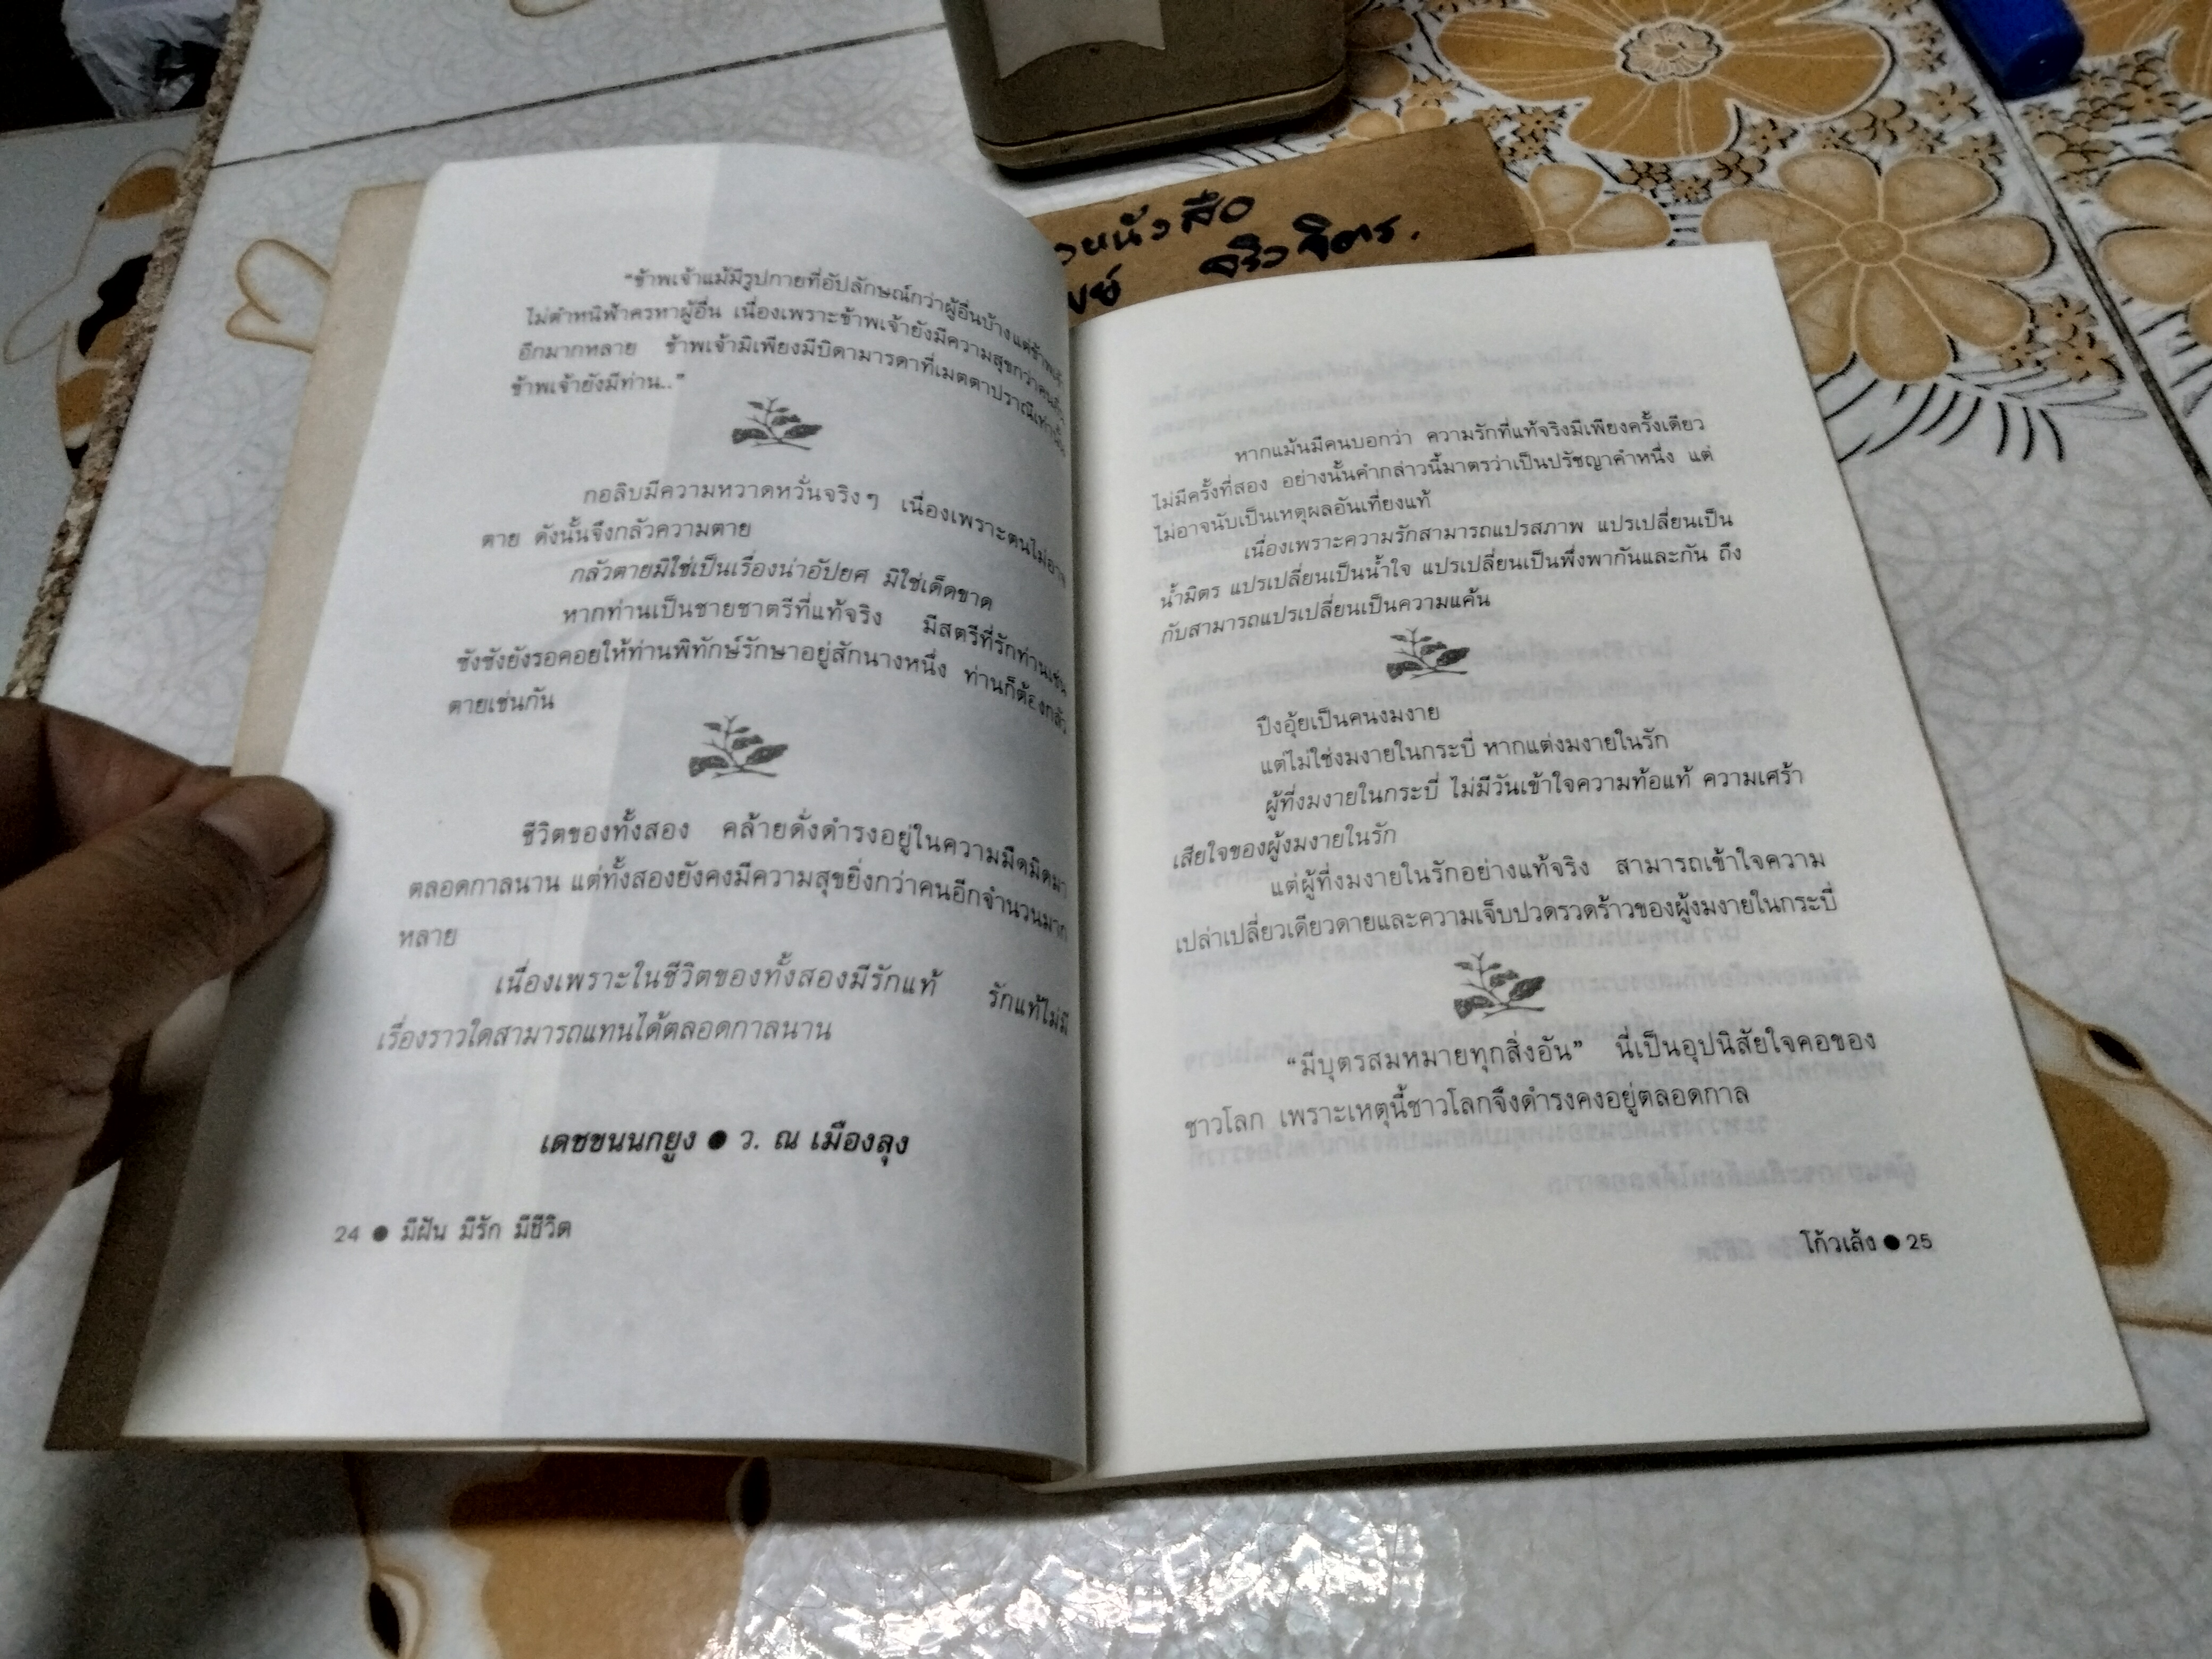 "ข้าพเจ้าแม้มีรูปกายที่อัปลักษณ์กว่าผู้อื่นบ้าง แต่ข้าพเจ้า
ไม่ตำหนิฟ้าครหาผู้อื่น เนื่องเพราะข้าพเจ้ายังมีความสุขกว่าคนอื่น
อีกมากหลาย ข้าพเจ้ามิเพียงมีบิดามารดาที่เมตตาปราณีเท่านั้น
ข้าพเจ้ายังมีท่าน.."
กอลิบมีความหวาดหวั่นจริงๆ เนื่องเพราะตนไม่อาจ
ตาย ดังนั้นจึงกลัวความตาย
กลัวตายมิใช่เป็นเรื่องน่าอัปยศ มิใช่เด็ดขาด
หากท่านเป็นชายชาตรีที่แท้จริง มีสตรีที่รักท่านเช่น
ชังชังยังรอคอยให้ท่านพิทักษ์รักษาอยู่สักนางหนึ่ง ท่านก็ต้องกลัว
ตายเช่นกัน
ชีวิตของทั้งสอง คล้ายดั่งดำรงอยู่ในความมืดมิดมา
ตลอดกาลนาน แต่ทั้งสองยังคงมีความสุขยิ่งกว่าคนอีกจำนวนมาก
หลาย
เนื่องเพราะในชีวิตของทั้งสองมีรักแท้ รักแท้ไม่มี
เรื่องราวใดสามารถแทนได้ตลอดกาลนาน
เดชขนนกยูง ● ว. ณ เมืองลุง
24 ● มีฝัน มีรัก มีชีวิต
วยหนังสือ
จริวจิตร.
หากแม้นมีคนบอกว่า ความรักที่แท้จริงมีเพียงครั้งเดียว
ไม่มีครั้งที่สอง อย่างนั้นคำกล่าวนี้มาตรว่าเป็นปรัชญาคำหนึ่ง แต่
ไม่อาจนับเป็นเหตุผลอันเที่ยงแท้
เนื่องเพราะความรักสามารถแปรสภาพ แปรเปลี่ยนเป็น
น้ำมิตร แปรเปลี่ยนเป็นน้ำใจ แปรเปลี่ยนเป็นพึ่งพากันและกัน ถึง
กับสามารถแปรเปลี่ยนเป็นความแค้น
ปึงอุ้ยเป็นคนงมงาย
แต่ไม่ใช่งมงายในกระบี่ หากแต่งมงายในรัก
ผู้ที่งมงายในกระบี่ ไม่มีวันเข้าใจความท้อแท้ ความเศร้า
เสียใจของผู้งมงายในรัก
แต่ผู้ที่งมงายในรักอย่างแท้จริง สามารถเข้าใจความ
เปล่าเปลี่ยวเดียวดายและความเจ็บปวดรวดร้าวของผู้งมงายในกระบี่
"มีบุตรสมหมายทุกสิ่งอัน" นี่เป็นอุปนิสัยใจคอของ
ชาวโลก เพราะเหตุนี้ชาวโลกจึงดำรงคงอยู่ตลอดกาล
โก้วเล้ง ● 25